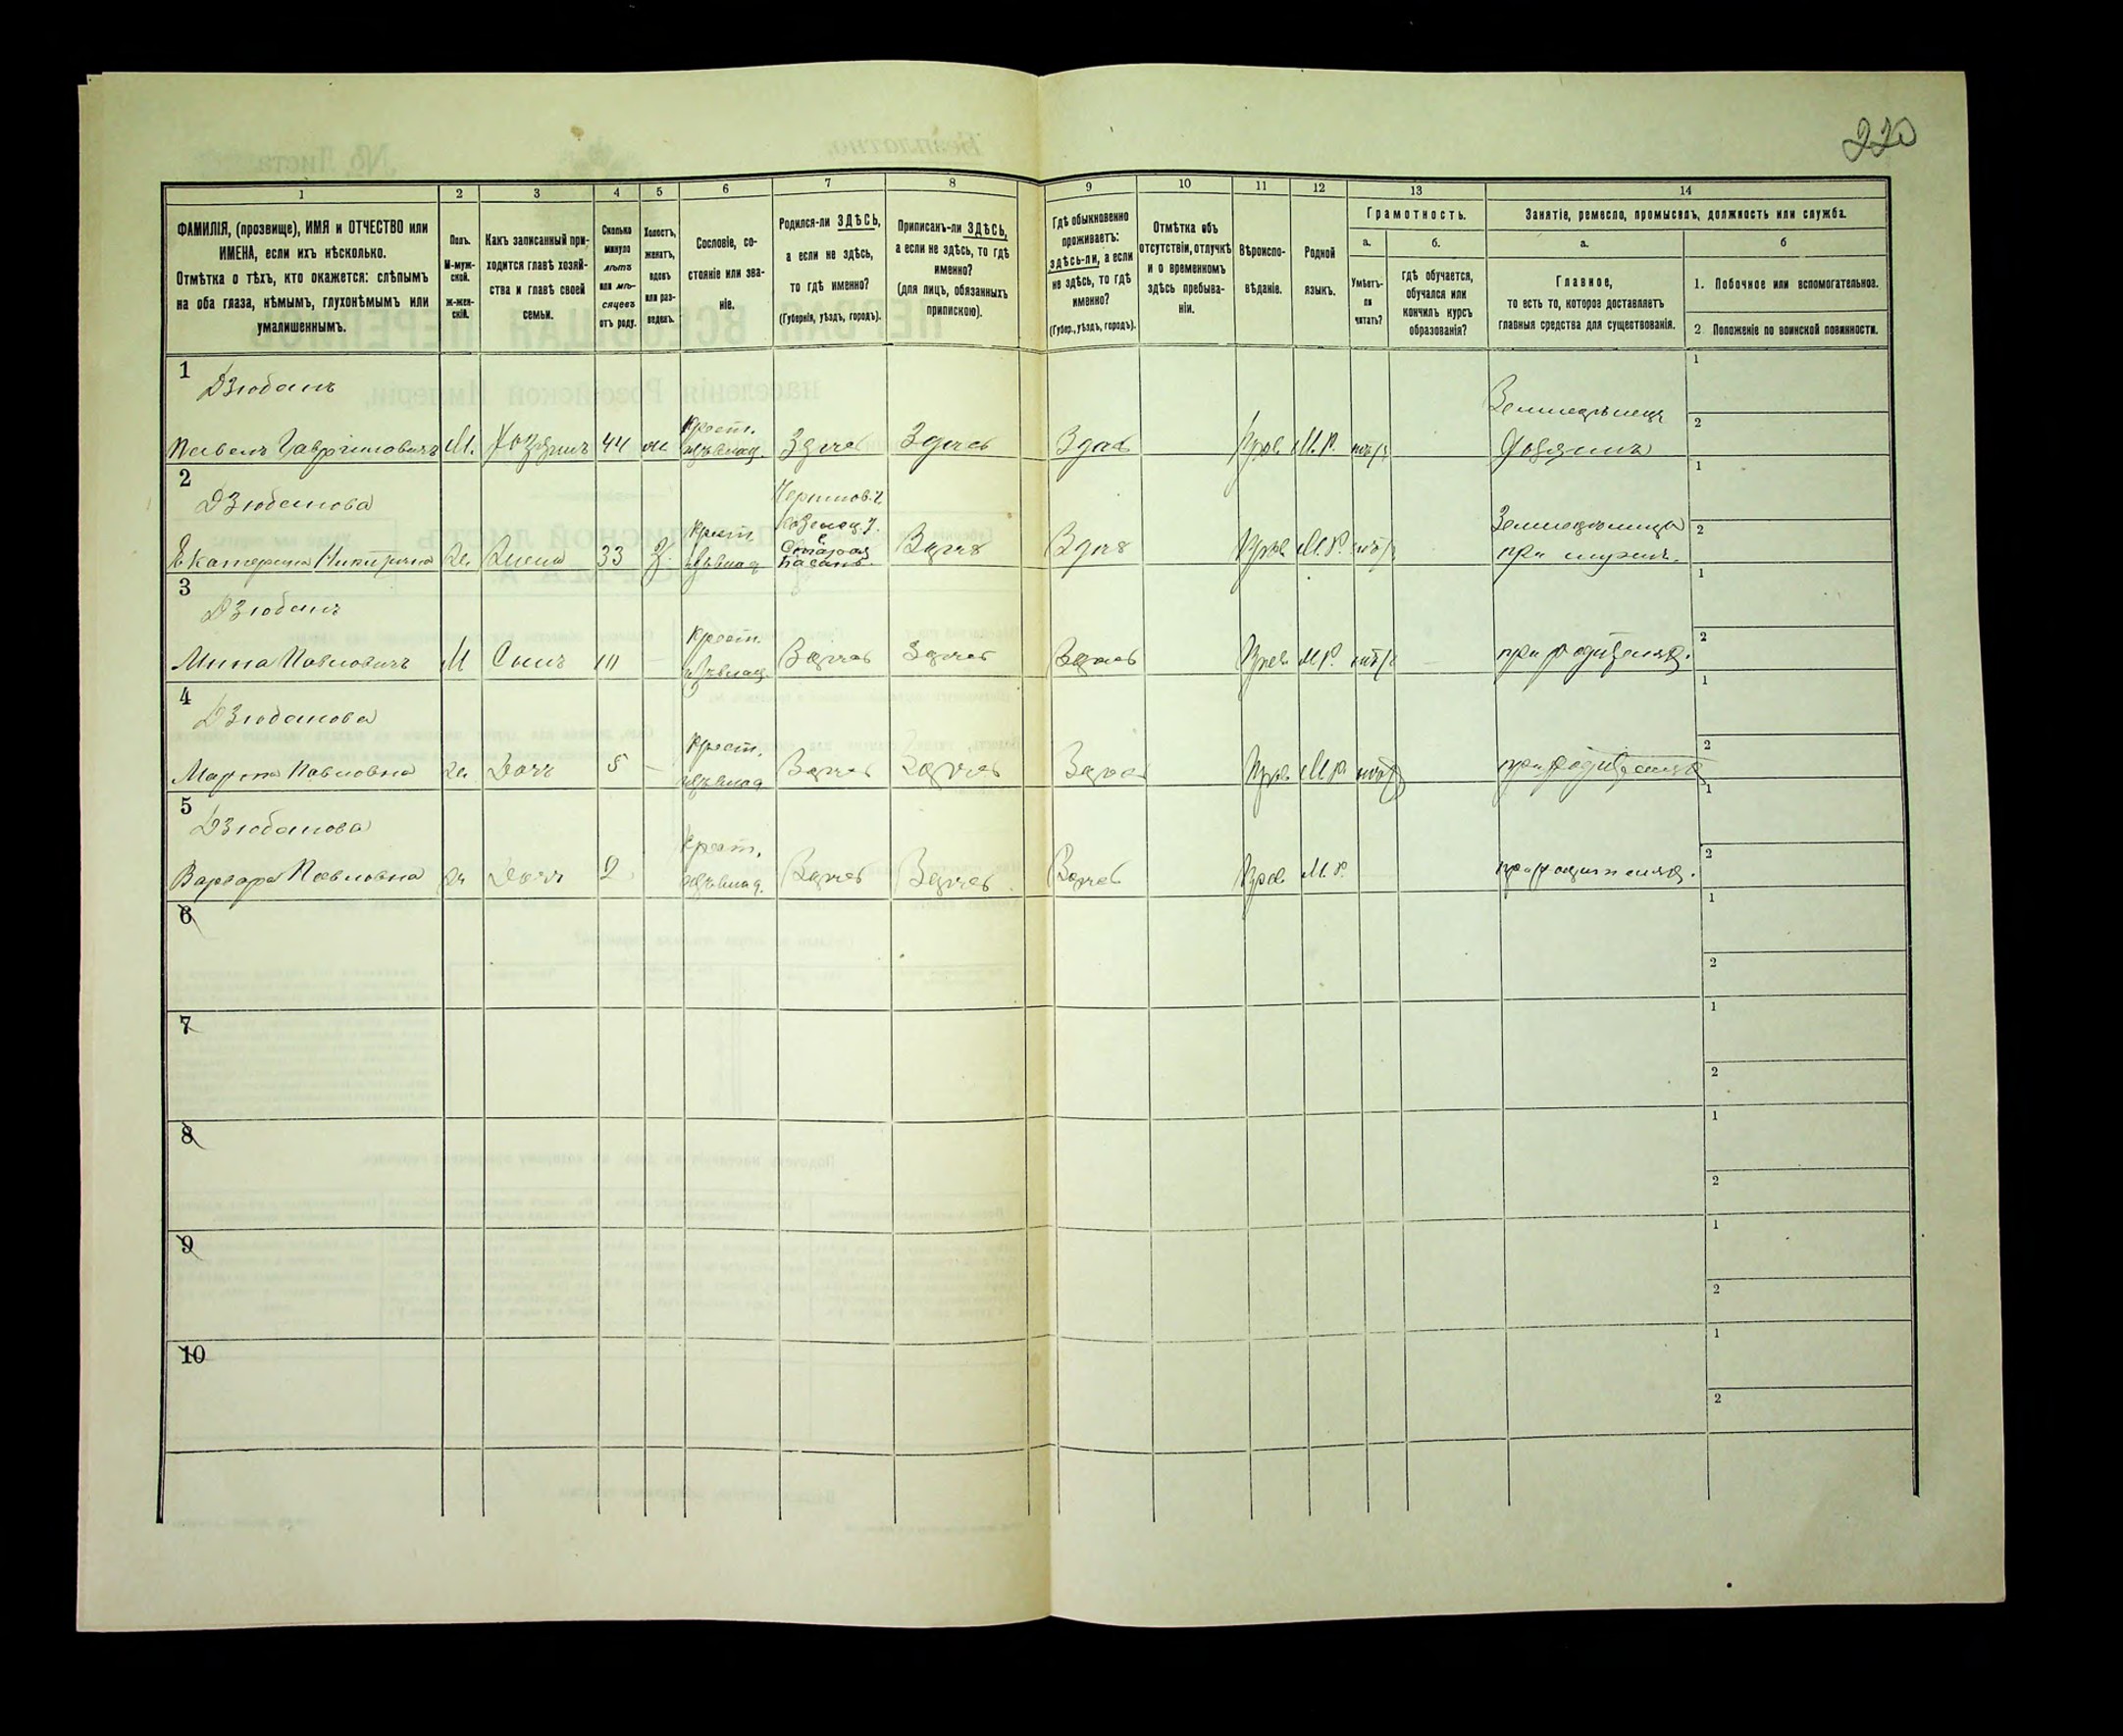 220
1 2 3 4 5 6 7 8 9 10 11 12 13 14
ФАМИЛІЯ, (прозвище), ИМЯ и ОТЧЕСТВО или
ИМЕНА, если ихъ нѣсколько.
Отмѣтка о тѣхъ, кто окажется: слѣпымъ
на оба глаза, нѣмымъ, глухонѣмымъ или
умалишеннымъ.
Полъ.
М-муж-
ской.
Ж-жен-
скій.
Какъ записанный при-
ходится главѣ хозяй-
ства и главѣ своей
семьи.
Сколько
минуло
лѣтъ
или мѣ-
сяцевъ
отъ роду.
Холостъ,
женатъ,
вдовъ
или раз-
веденъ.
Сословіе, со-
стояніе или зва-
ніе.
Родился-ли ЗДѢСЬ,
а если не здѣсь,
то гдѣ именно?
(Губернія, уѣздъ, городъ).
Приписанъ-ли ЗДѢСЬ,
а если не здѣсь, то гдѣ
именно?
(для лицъ, обязанныхъ
припискою).
Гдѣ обыкновенно
проживаетъ:
здѣсь-ли, а если
не здѣсь, то гдѣ
именно?
(Губер., уѣздъ, городъ).
Отмѣтка объ
отсутствіи, отлучкѣ
и о временномъ
здѣсь пребыва-
ніи.
Вѣроиспо-
вѣданіе.
Родной
языкъ.
Грамотность.
а. б.
Умѣетъ-
ли
читать?
гдѣ обучается,
обучался или
кончилъ курсъ
образованія?
Занятіе, ремесло, промыселъ, должность или служба.
а. б
Главное,
то есть то, которое доставляетъ
главныя средства для существованія.
1. Побочное или вспомогательное.
2 Положеніе по воинской повинности.
1 Дзюбанъ Земледѣлецъ 1
Крест.
Павелъ Гавриловичъ М. Хозяинъ 44 ж Здѣсь Здѣсь Здѣсь Прав. М.Р. нѣтъ Хозяинъ 2
2 Дзюбанова Чернигов. г. 1
Козелец. у. Земледѣлица
Крест. Старая
Екатерина Никитична Ж. Жена 33 З. Басань. Здѣсь Здѣсь Прав. М.Р. нѣтъ при мужѣ. 2
3 Дзюбанъ 1
Крест.
Мина Павловичъ М Сынъ Здѣсь Здѣсь Здѣсь Прав. М.Р. нѣтъ при родителяхъ. 2
4 Дзюбанова 1
Крест.
Павловна Ж. Дочь 5 Здѣсь Здѣсь Здѣсь Прав. М.Р. нѣтъ при родителяхъ 2
5 Дзюбанова 1
Крест.
Варвара Павловна Ж Дочь 2 Здѣсь Здѣсь Здѣсь Прав. М.Р. при родителяхъ. 2
6 1
2
7 1
2
8 1
2
9 1
2
10 1
2